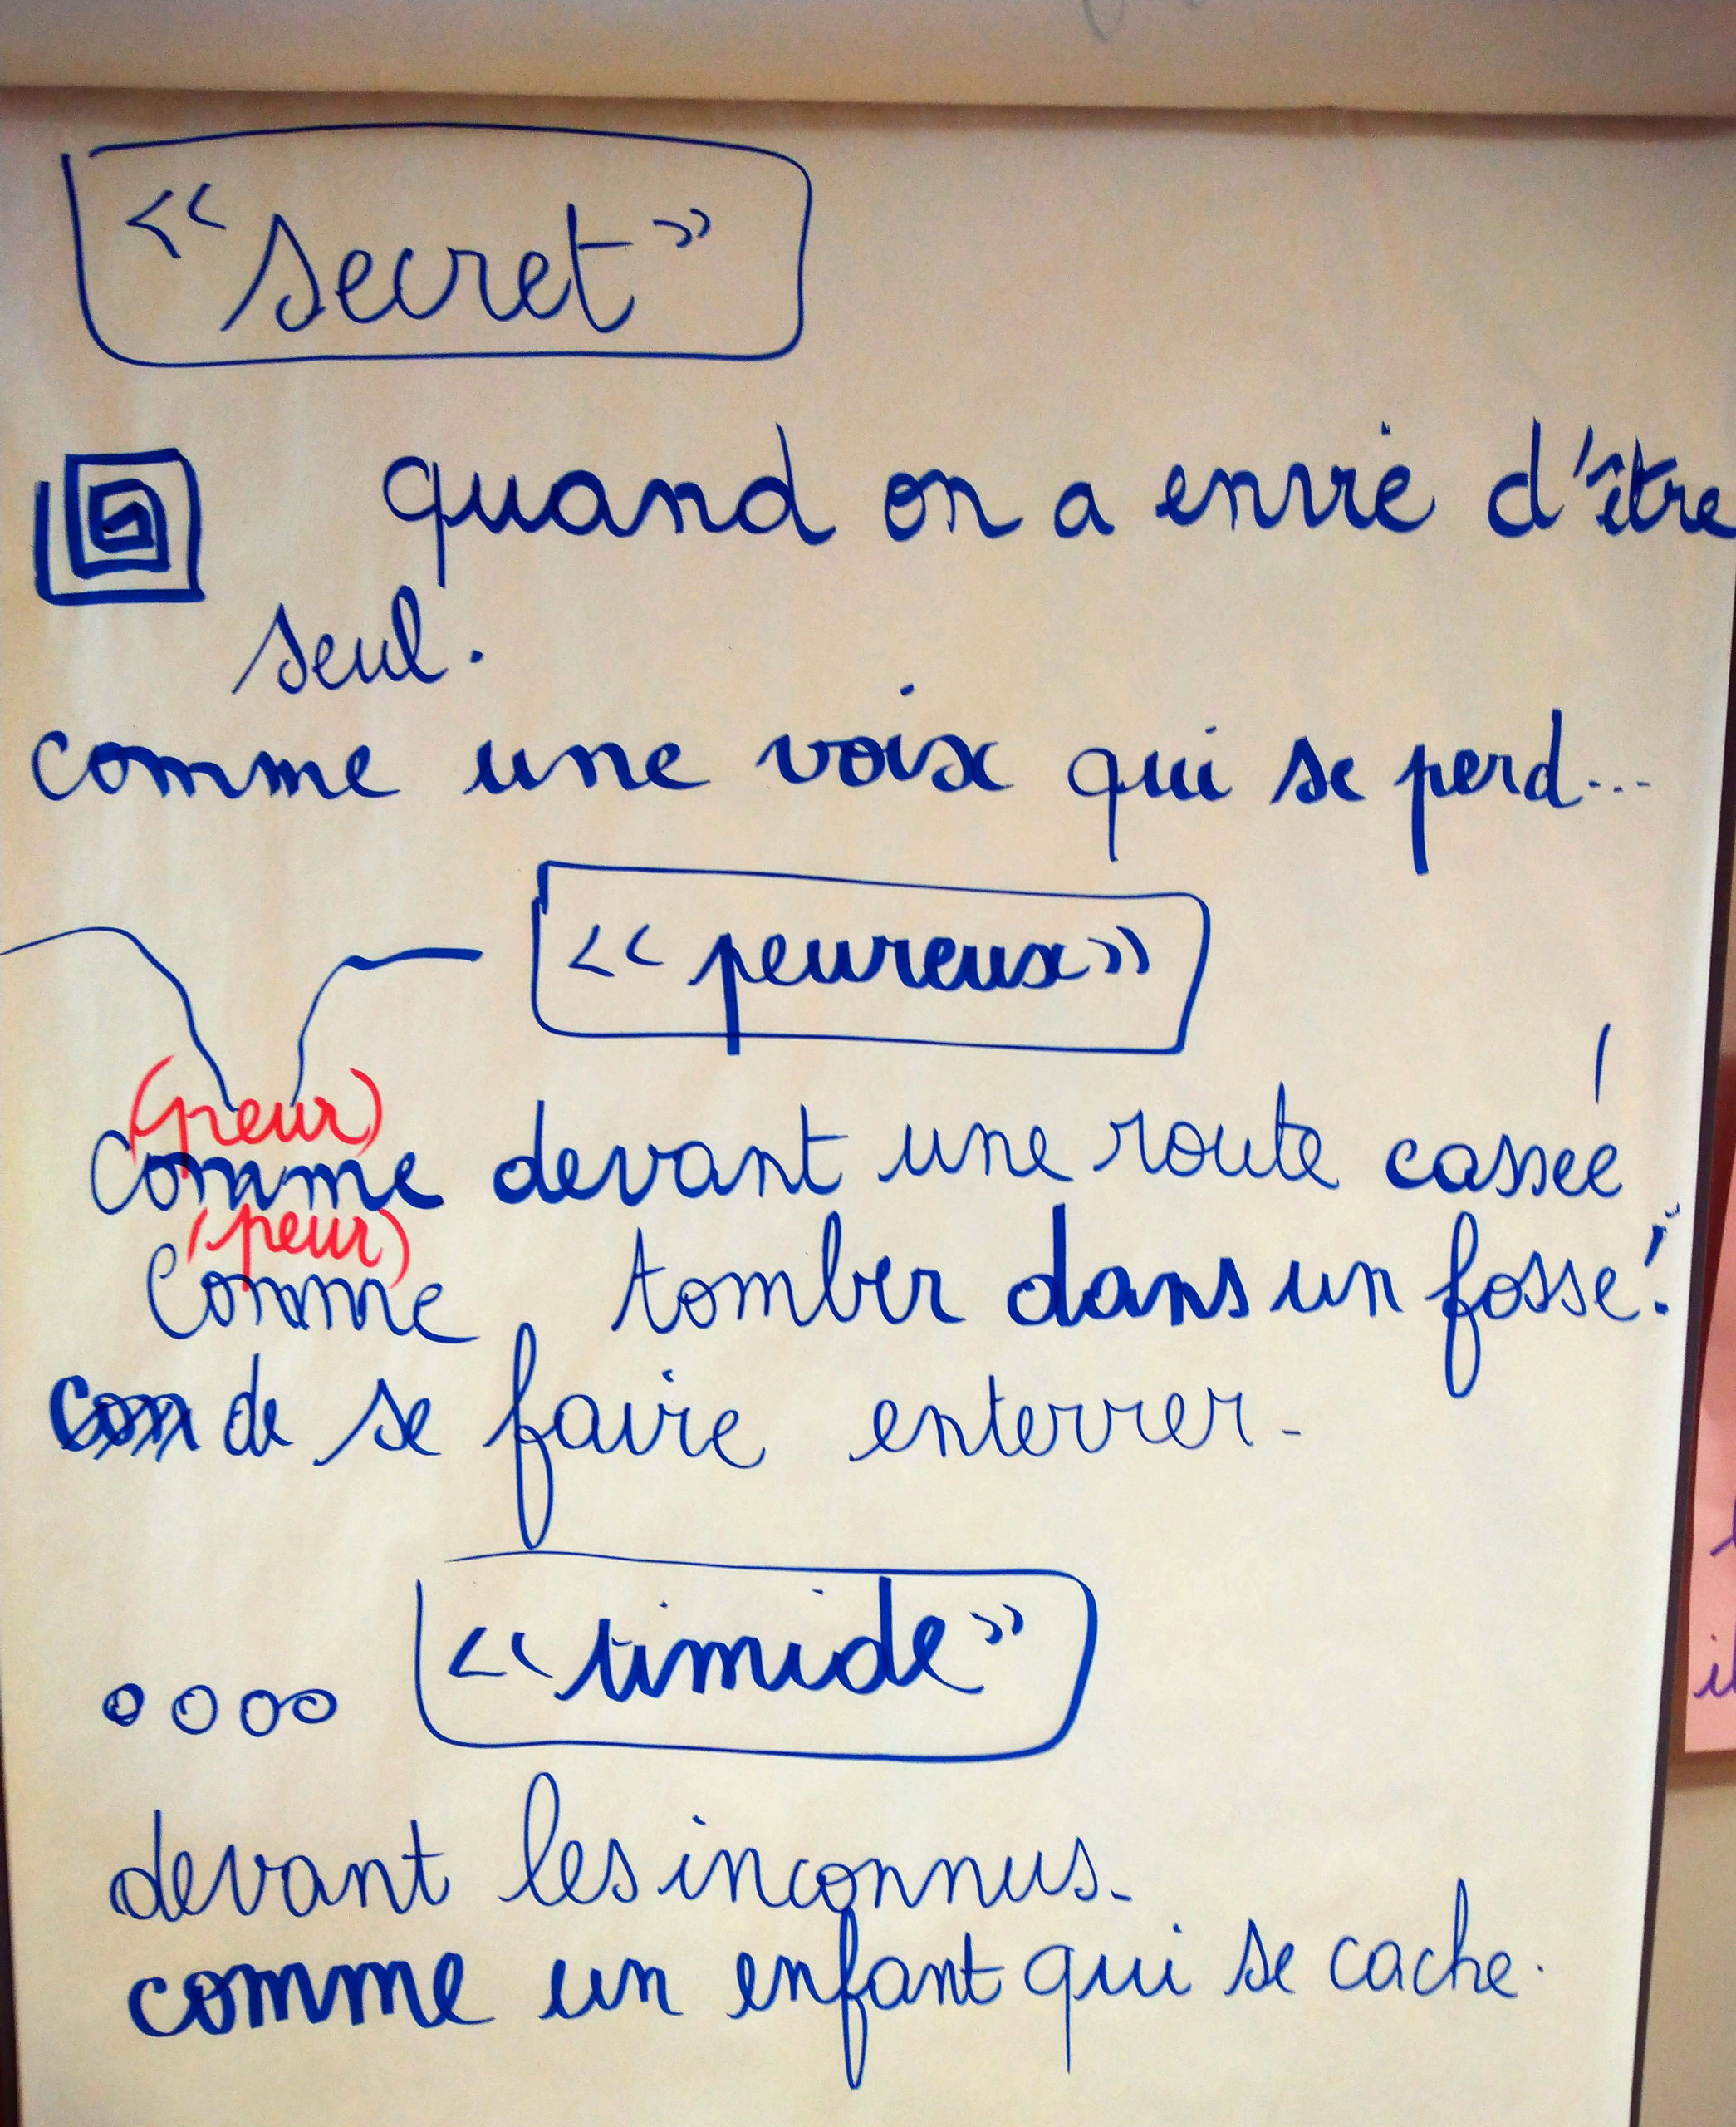 << secret >>
quand on a envie d'être
seul.
comme une voix qui se perd...
<< peureux >>
(peur)
Comme devant une route cassée
(peur)
Comme tomber dans un fossé!
de se faire enterrer.
<< timide >>
devant les inconnus.
comme un enfant qui se cache.